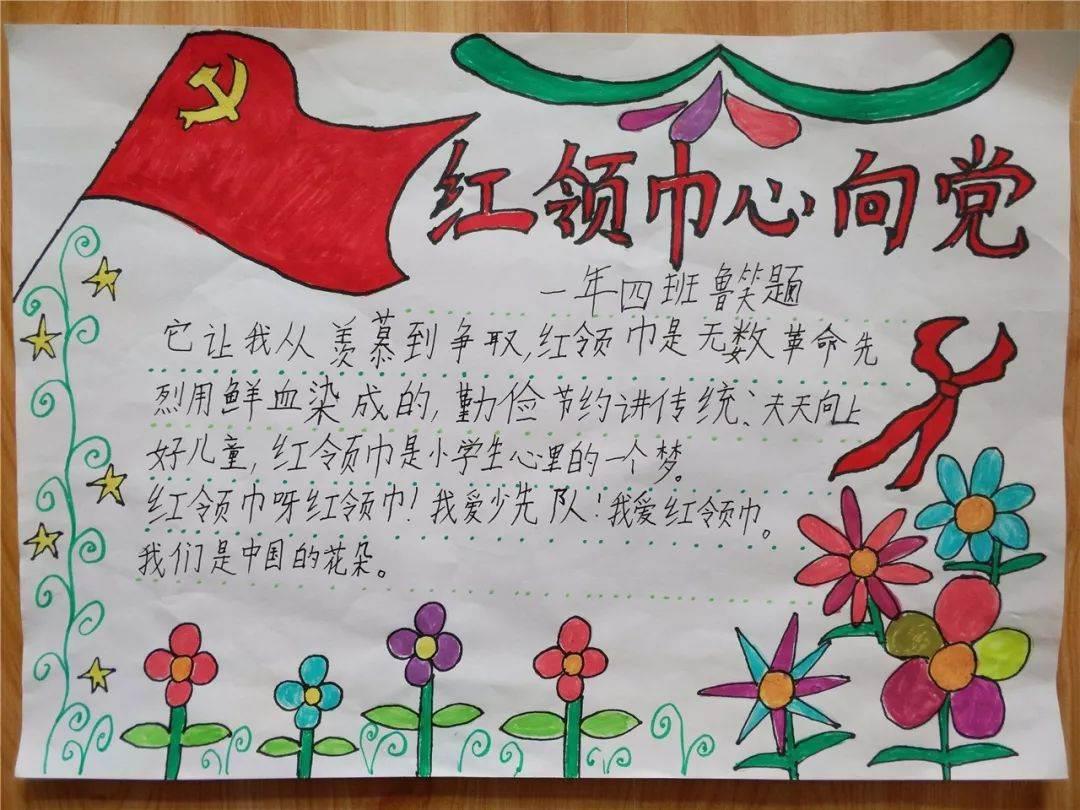 红领巾心向党
一年四班鲁笑题
它让我从羡慕到争取,红领巾是无数革命先
烈用鲜血染成的,勤俭节约讲传统、天天向上
好儿童,红领巾是小学生心里的一个梦。
红领巾呀红领巾!我爱少先队!我爱红领巾。
我们是中国的花朵。